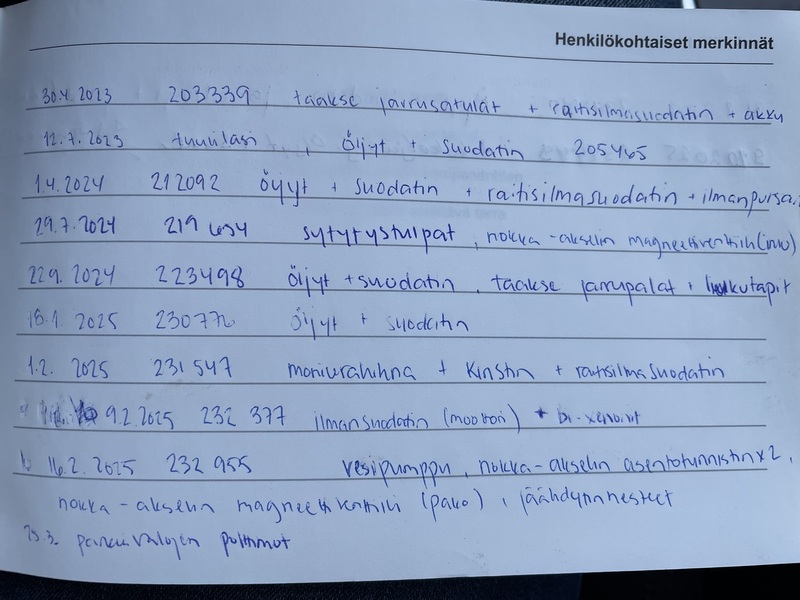 Henkilökohtaiset merkinnät
30.4.2023 203339 taakse jarrusatulat + raitisilmasuodatin + akku
12.7.2023 tuulilasi, Öljyt + suodatin 205465
1.4.2024 212092 öljyt + suodatin + raitisilmasuodatin + ilmanpursa
29.7.2024 219 sytytystulpat, nokka-akselin magneettiventtiili (imu)
22.9.2024 223498 Öljyt + suodatin, taakse jarrupalat, liukutapit
18.1.2025 öljyt + suodatin
1.2. 2025 231 547 moniurahihna + kiristin + raitisilmasuodatin
9.2.2025 232 377 ilmansuodatin (moottori) + bi-xenonit
16.2.2025 232 955 vesipumppu, nokka-akselin asentotunnistin x2,
nokka-akselin magneettiventtiili (pako), jäähdytinnesteet
polttimot